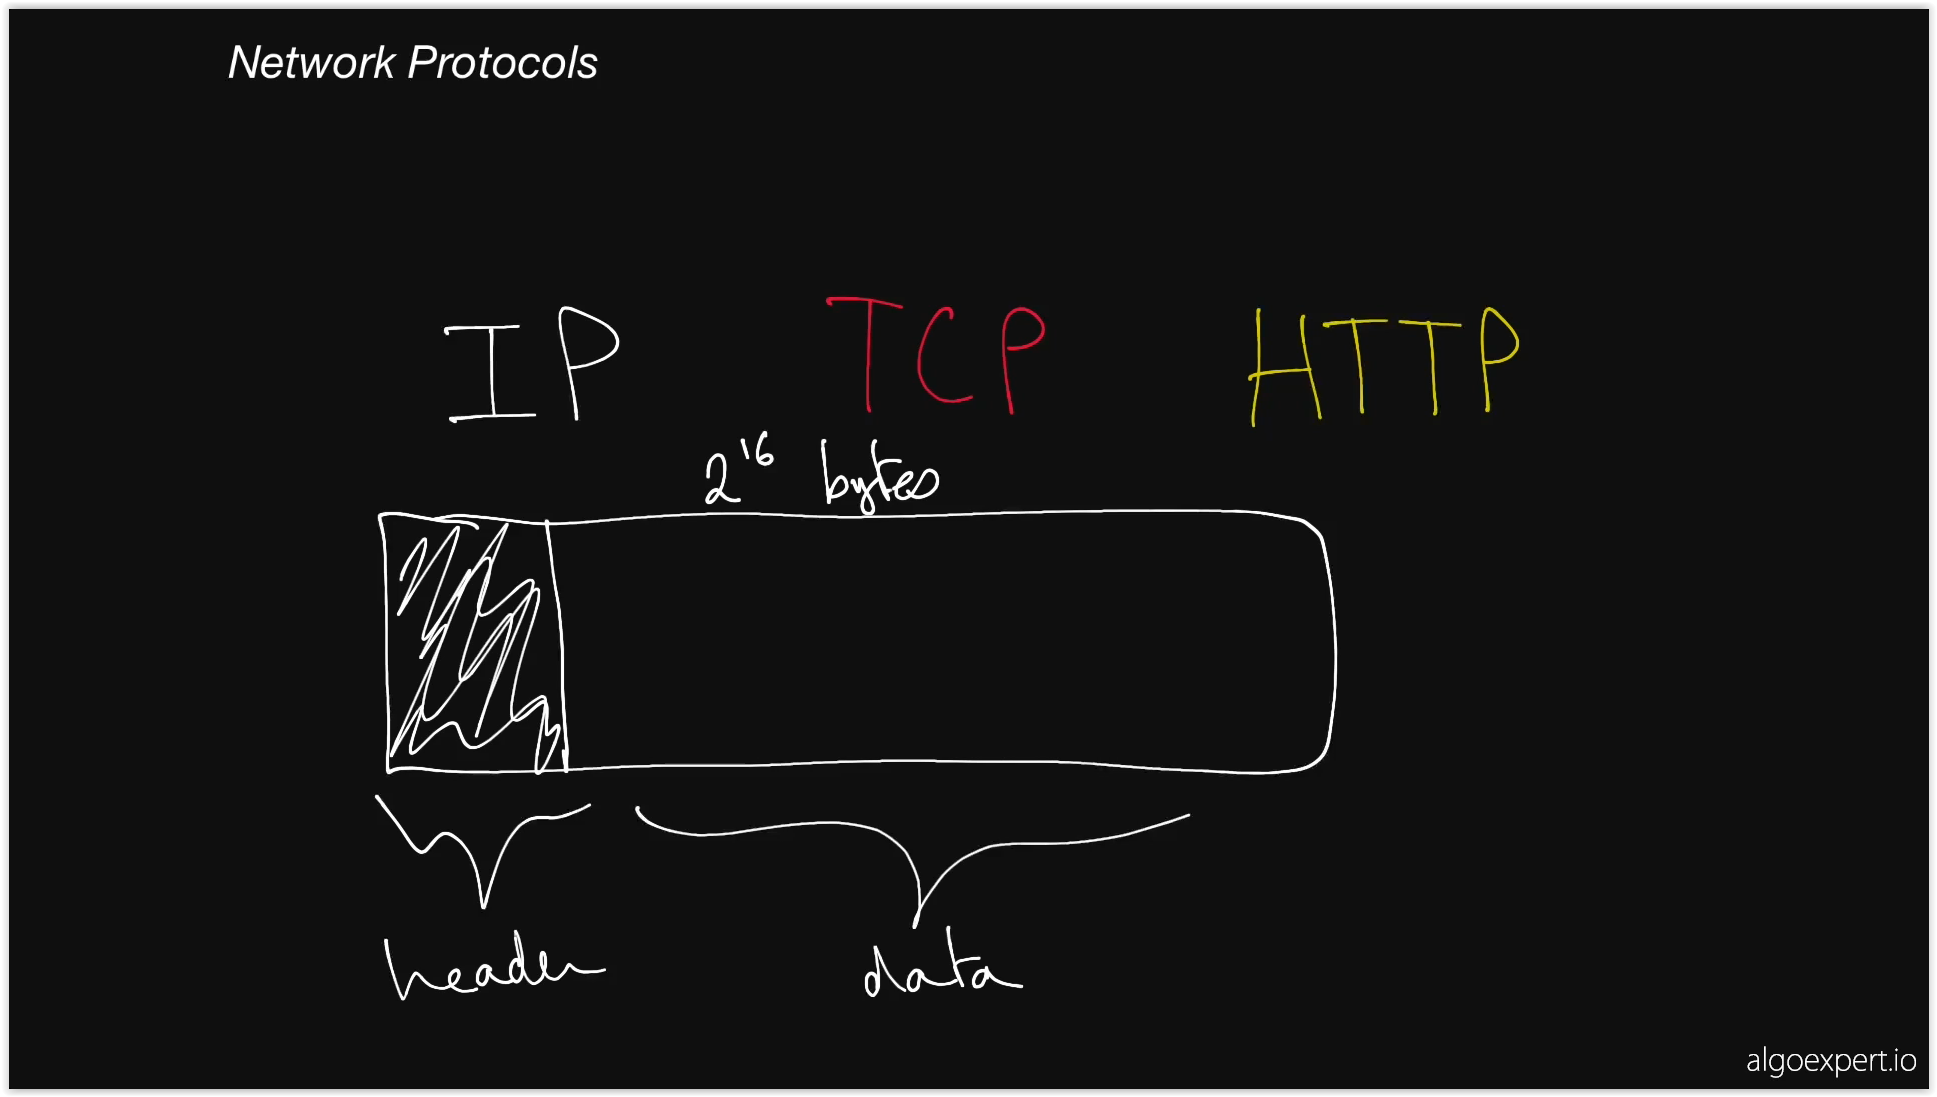 Network Protocols
IP TCP HTTP
2^16 bytes
header data
algoexpert.io